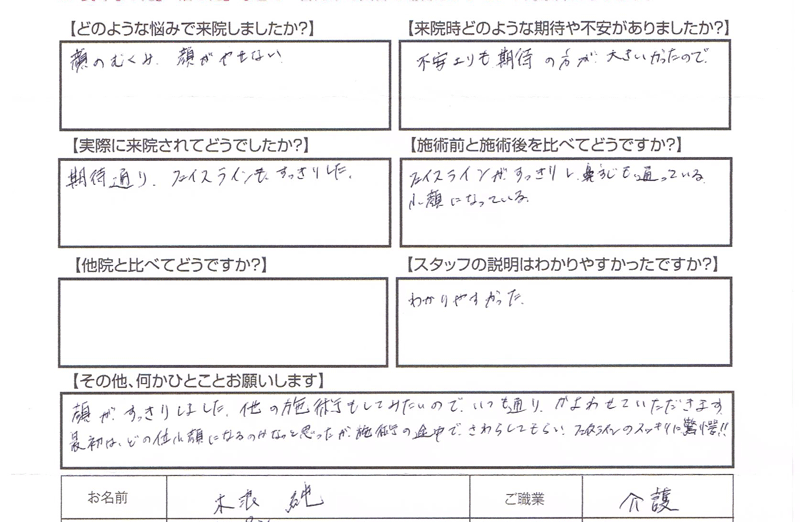 【どのような悩みで来院しましたか?】
顔のむくみ、顔がやせない
【来院時どのような期待や不安がありましたか?】
不安よりも期待の方が大きいかったので。
【実際に来院されてどうでしたか?】
期待通り、フェイスラインもすっきりした。
【施術前と施術後を比べてどうですか?】
フェイスラインがすっきりし、鼻すじも通っている。
小顔になっている。
【他院と比べてどうですか?】
【スタッフの説明はわかりやすかったですか?】
わかりやすかった。
【その他、何かひとことお願いします】
顔がすっきりしました。他の施術もしてみたいので、いつも通り、かよわせていただきます。
最初は、どの位小顔になるのかなと思ったが、施術の途中で、さわらしてもらい、フェイスラインのスッキリに驚き!!
お名前
木浪 純
ご職業
介護